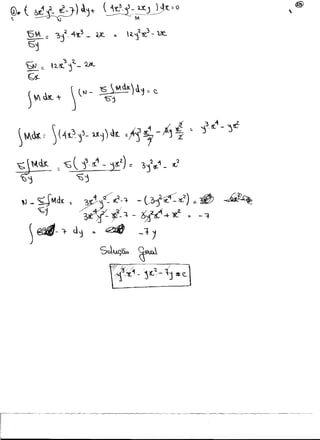 ( 3x⁴y² - x² - 7 ) dy + ( 4x³y³ - 2xy ) dx = 0
N M
δM/δy = 3y² 4x³ - 2x = 12y²x³ - 2x
δN/δx = 12x³y² - 2x
∫ M dx + ∫ ( N - δ∫Mdx/δy ) dy = c
∫Mdx = ∫(4x³y³ - 2xy) dx = 4y³ x⁴/4 - 2y x²/2 = y³x⁴ - yx²
δ∫Mdx/δy = δ( y³x⁴ - yx² )/δy = 3y²x⁴ - x²
N - δ∫Mdx/δy = 3x⁴y² - x² - 7 - (3y²x⁴ - x²) =
3x⁴y² - x² - 7 - 3y²x⁴ + x² = -7
∫ -7 dy = -7y
Solução Geral
y³x⁴ - yx² - 7y = c